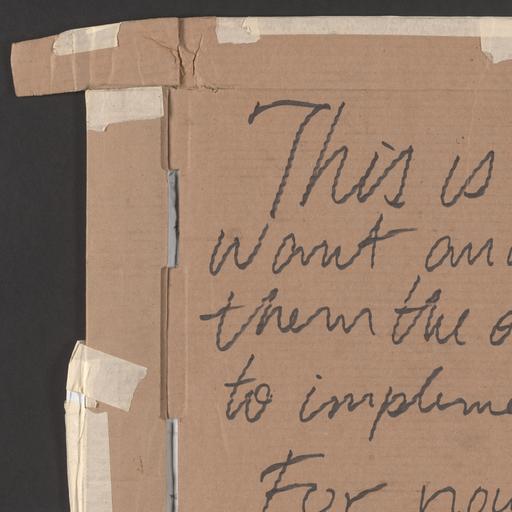 This is
want an
them the
to impleme
For now